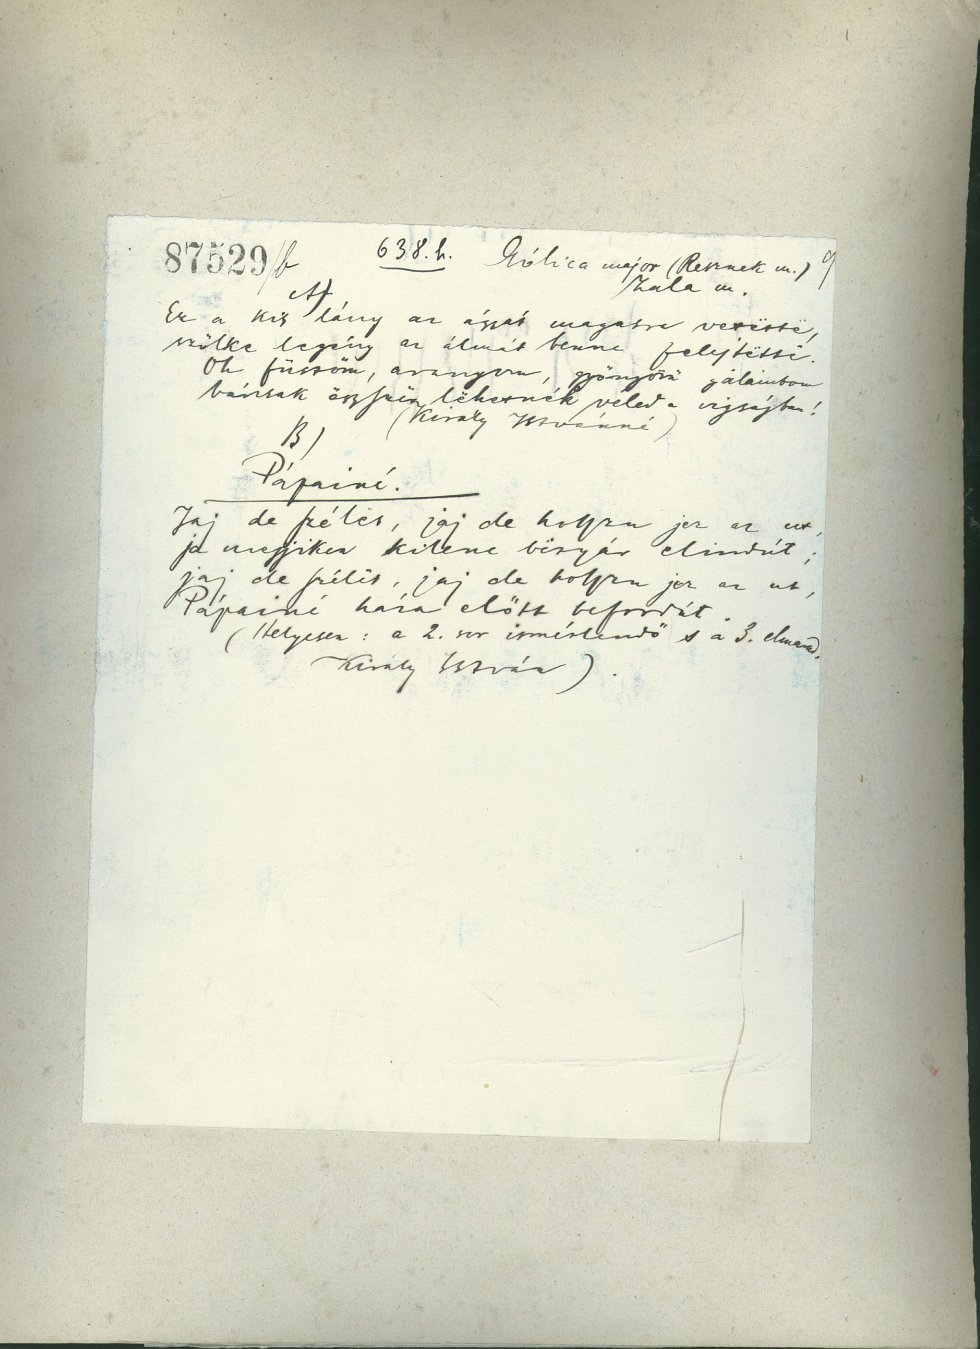 87529/b 638.h. Gólica major (Resznek m.) 9
Zala m.
A)
Ez a kis lány az ágyát magasra vetëtte,
szőke legény az álmát benne felejtëtte.
Oh füssöm, aranyom, gyöngyörü galambom
bárcsak ëggyszër lëhetnék veled a vigságban!
(Király Istvánné)
B)
Pápainé.
Jaj de szélës, jaj de hosszu jez az ut,
ja mejjiken kilenc bisgyár elindút;
jaj de szélës, jaj de hosszu jez az ut,
Pápainé háza előtt befordút.
(Helyesen: a 2. sor ismétlendő s a 3. elmarad.
Király István).